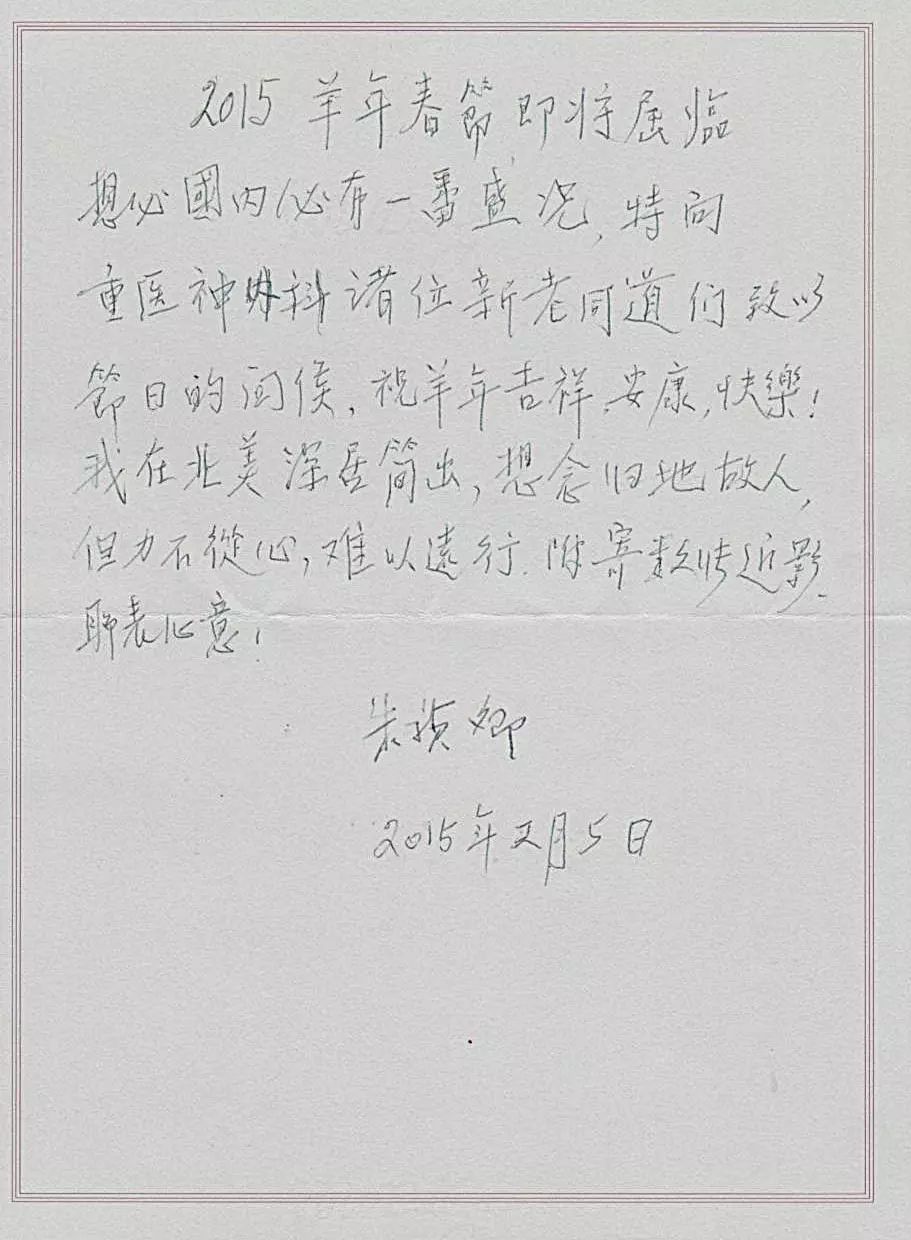 2015 羊年春節,即将届臨
想必國内必有一番盛况,特向
重医神内科诸位新老同道们致以
節日的问侯,祝羊年吉祥.安康,快樂!
我在北美深居简出,想念旧地故人,
但力不從心,难以遠行.附寄数帐近影.
聊表心意!
朱祯卿
2015年2月5日